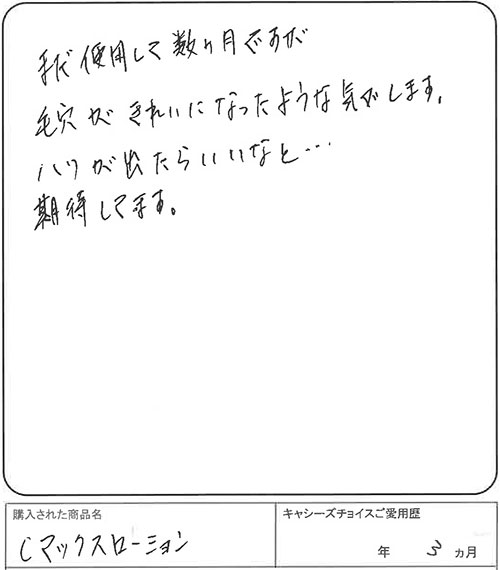 まだ使用して数ヶ月ですが
毛穴がきれいになったような気がします。
ハリが出たらいいなと…
期待してます。
購入された商品名
キャシーズチョイスご愛用歴
Cマックスローション
年 3 ヵ月